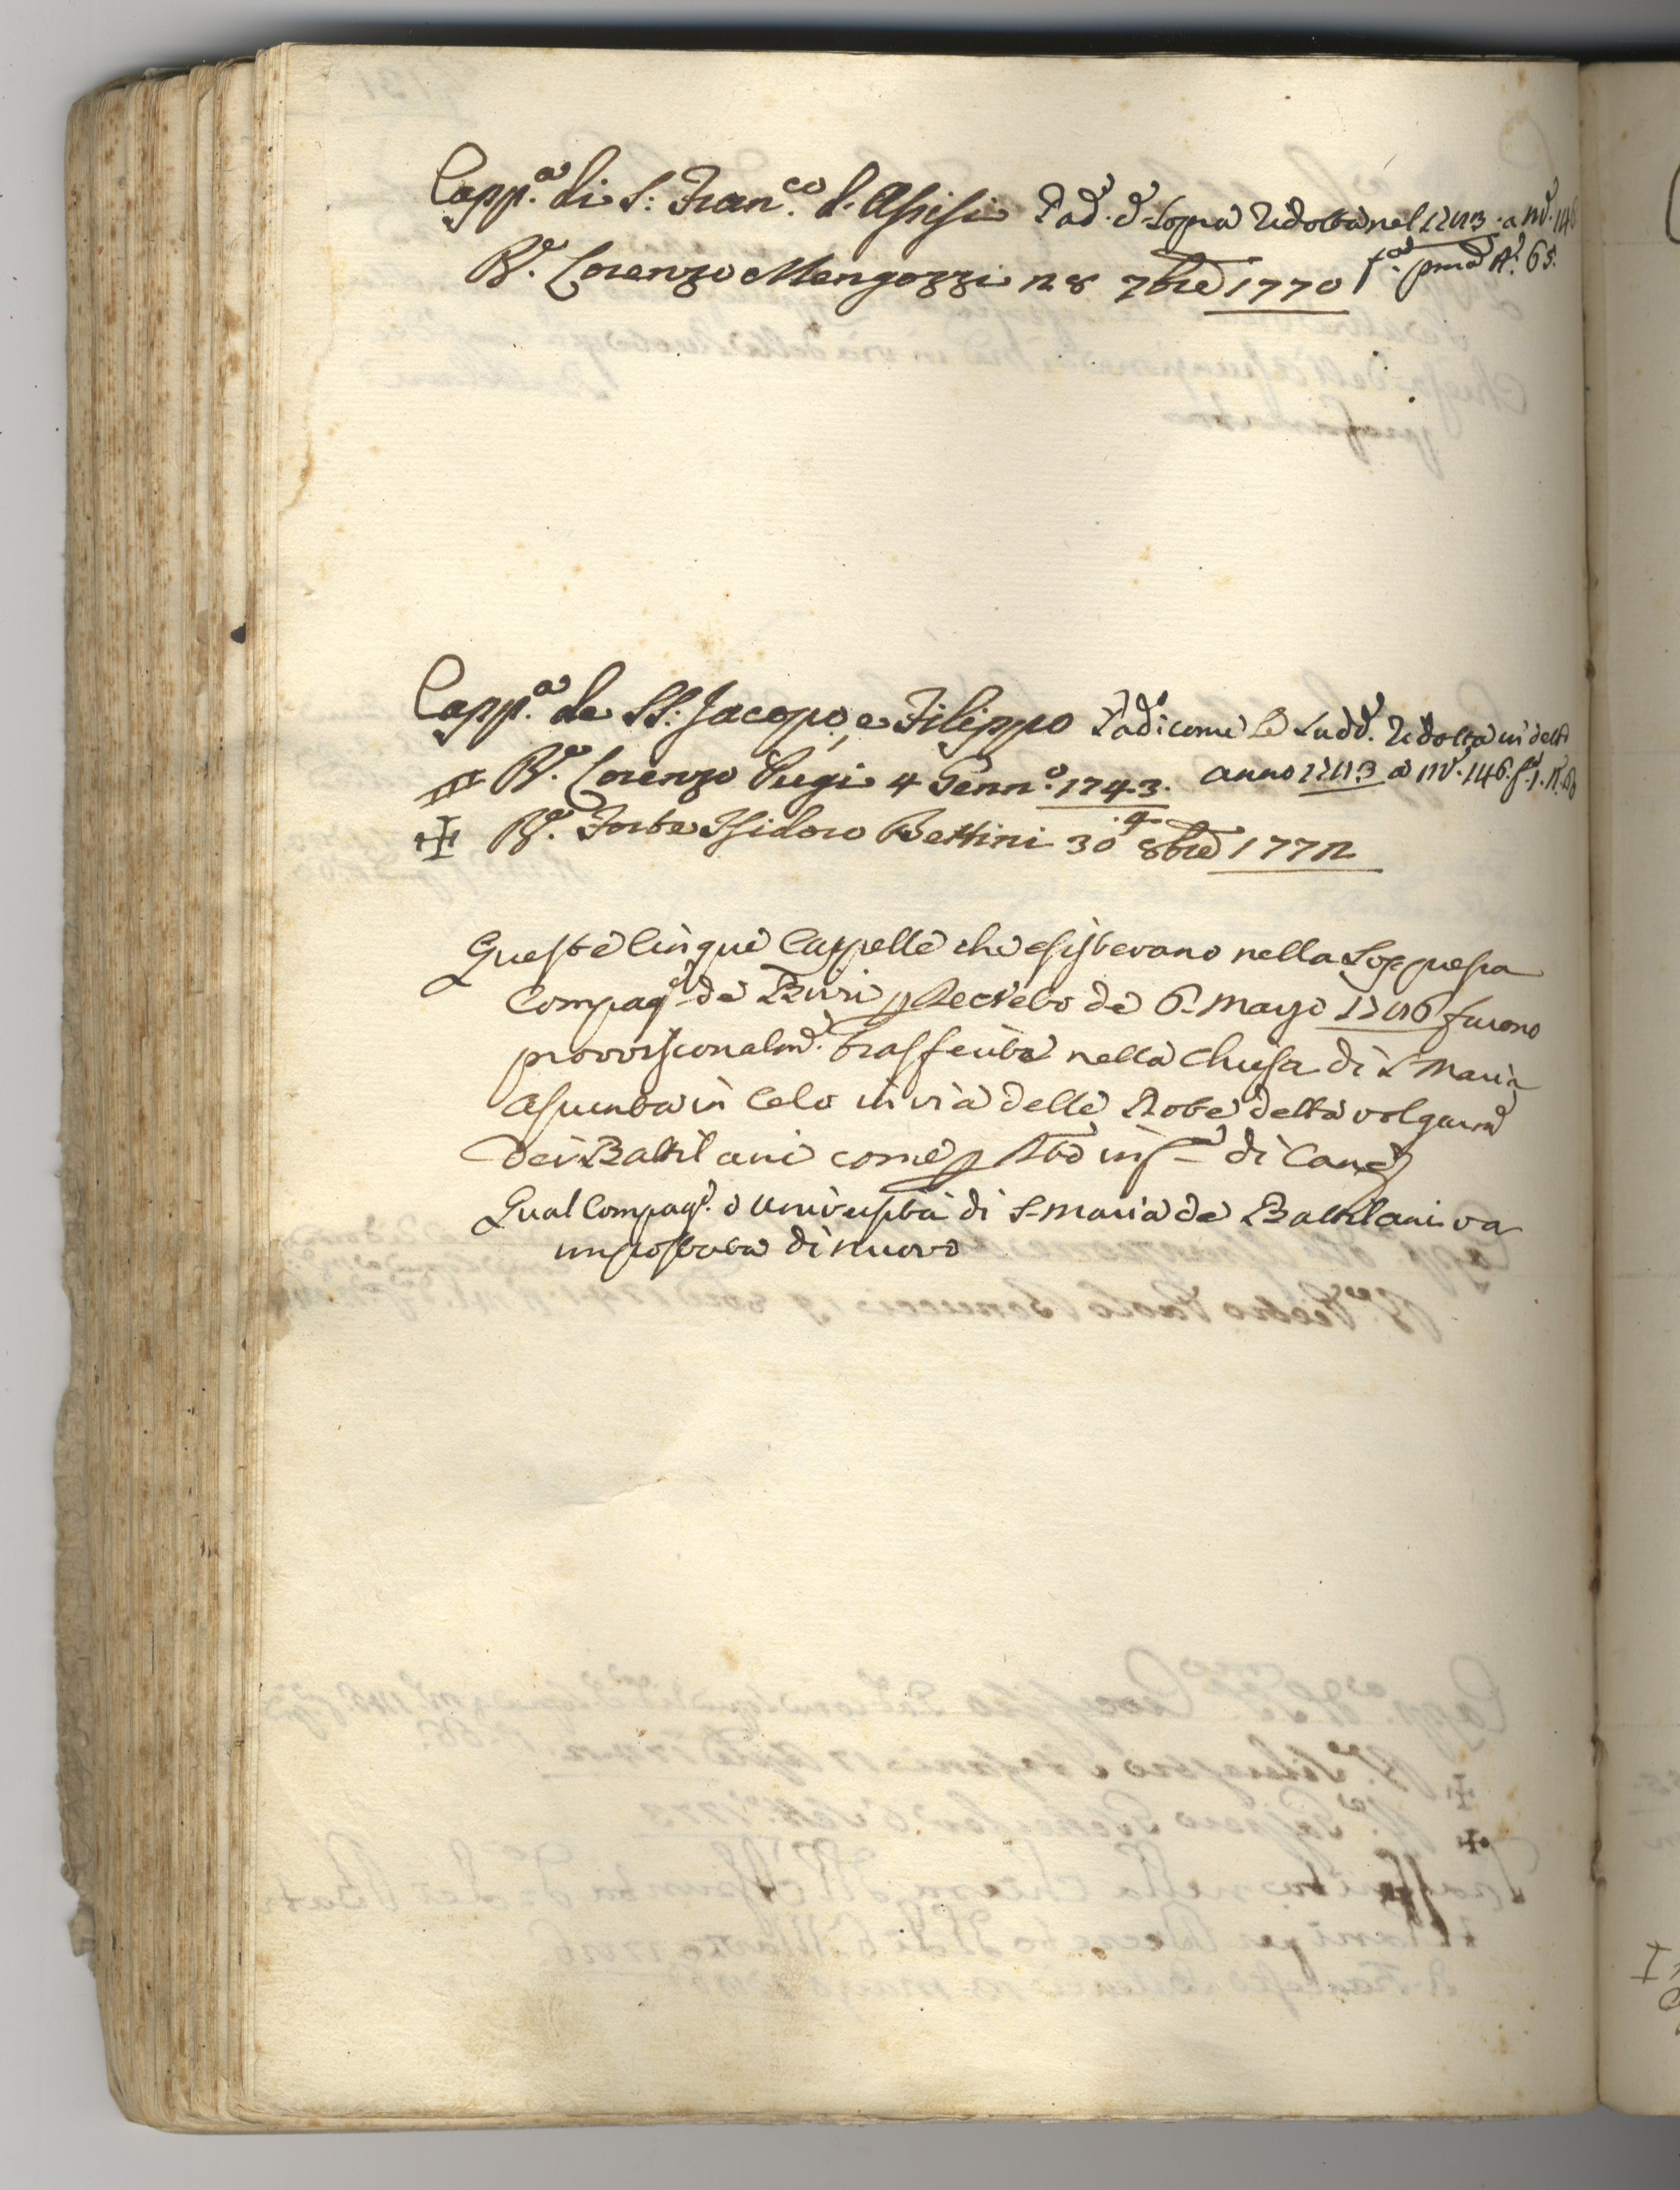 Capp.a di S: Fran.co d'Assisi Pad. d. Sopra Ridotta nel 1783. a nv. 146
R. Lorenzo Mengozzi 28 7bre 1770 f.a prima N. 65.
Capp.a de SS: Jacopo, e Filippo Pad. come le Sudd. Ridotta in detto
R. Lorenzo Pugi 4 Genn.o 1743. anno 1783 a nv. 146. f. 1. N.
R. Isidoro Bettini 30 8bre 1772
Queste Cinque Cappelle che esistevano nella Soppressa
Compag. de Decreto de 6. Marzo 1786 furono
provvisionalm. trasferite nella Chiesa di S. Maria
Assunta in Celo in via delle detta volgarm
dei Battilani come di Canc
Qual Compag. o Università di S. Maria de Battilani va
impostata di nuovo